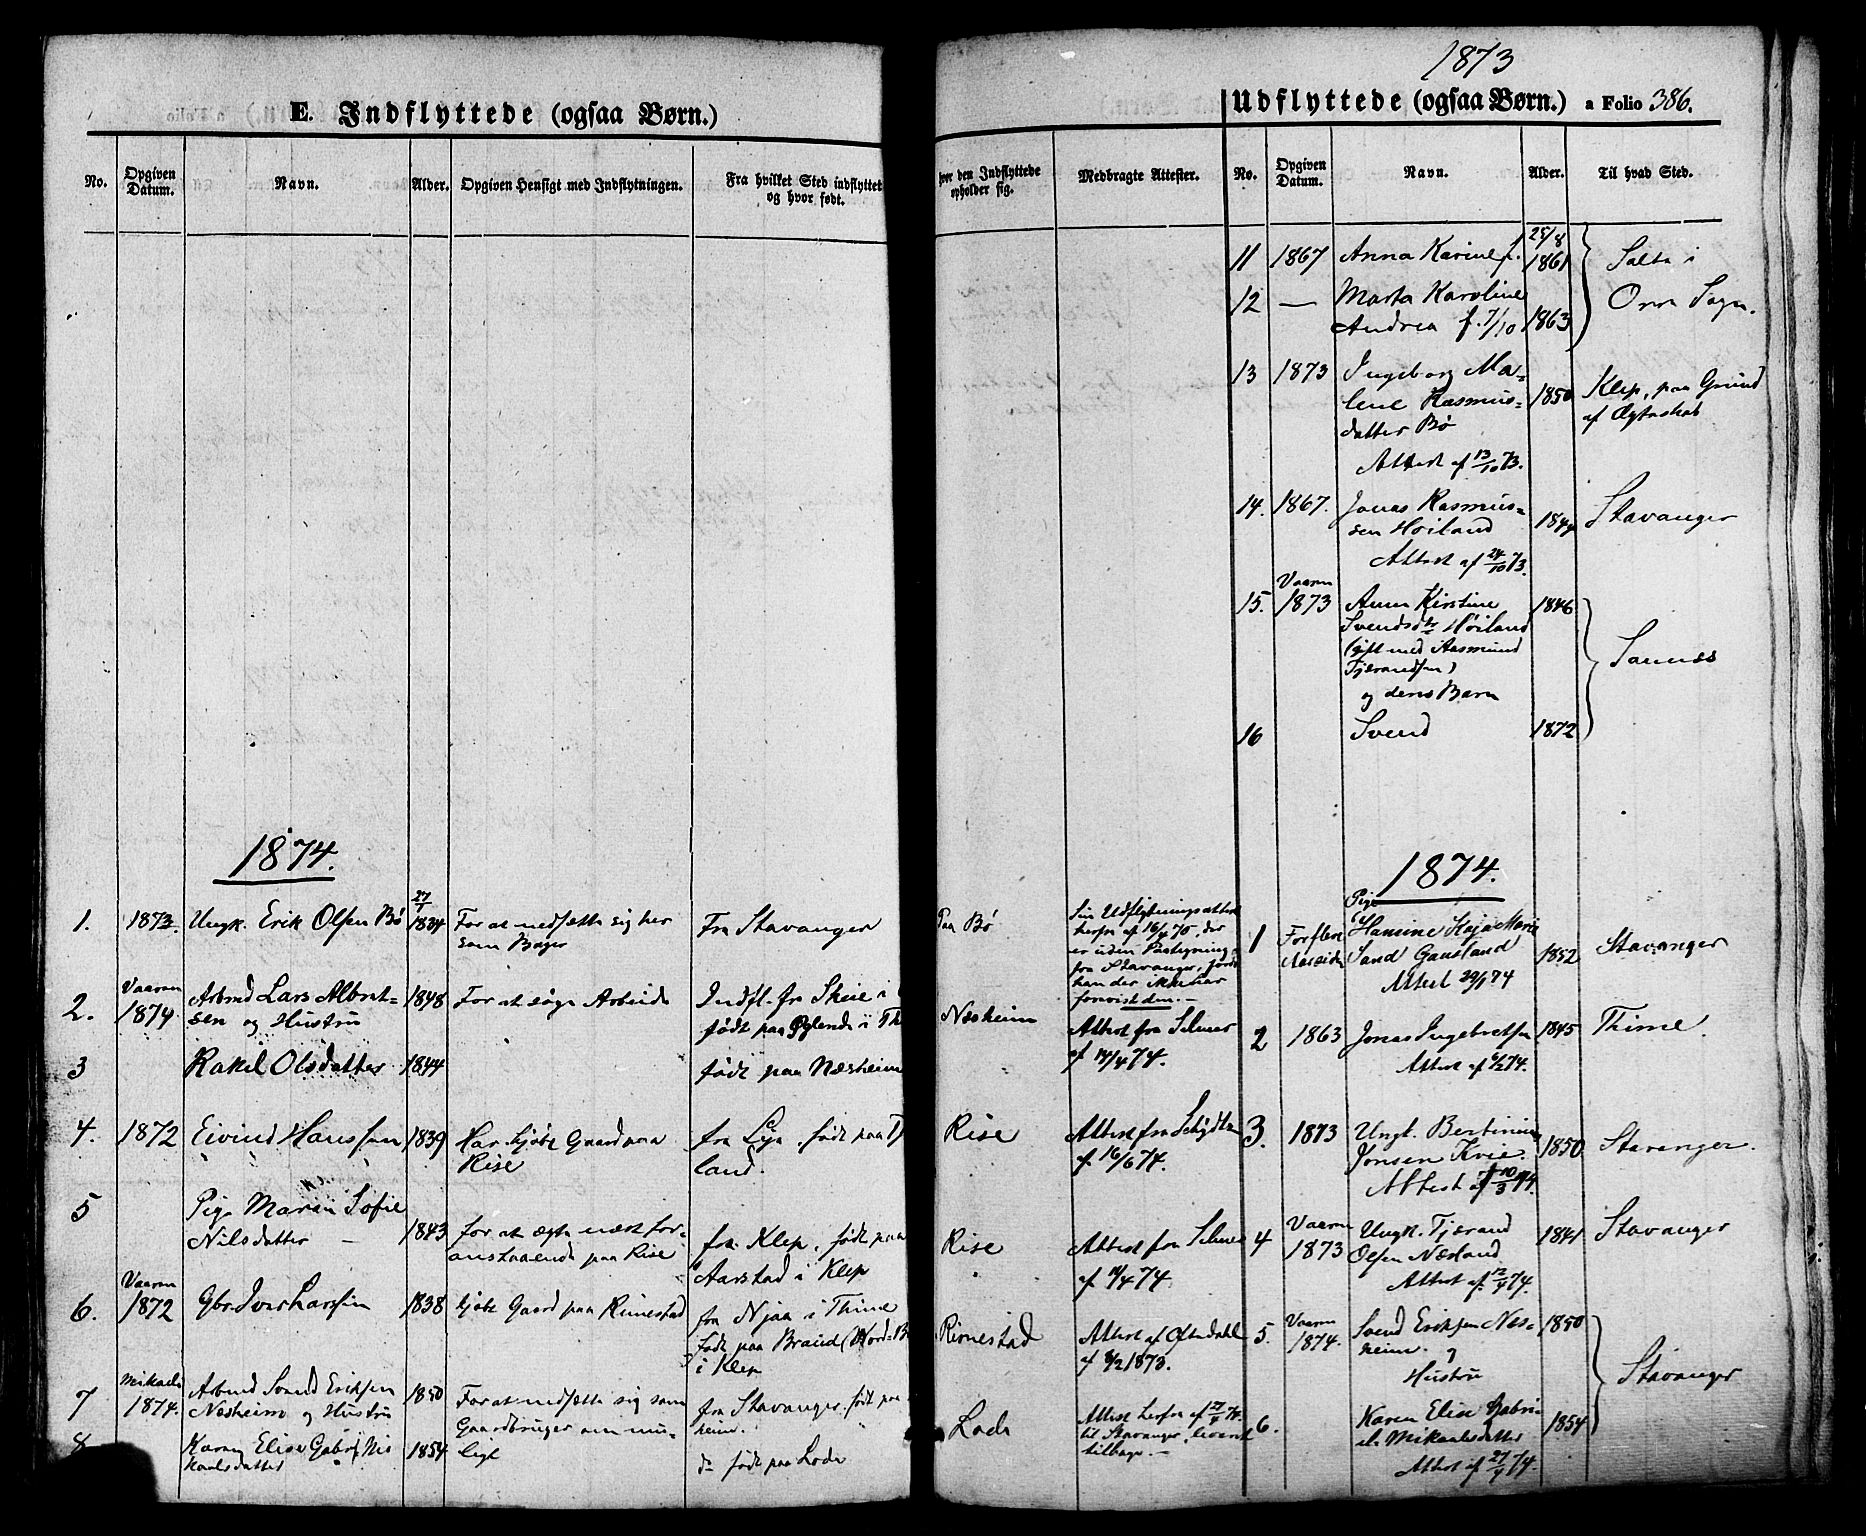 1873
E. Indflyttede (ogsaa Børn.)
No.
Opgiven Datum.
Navn.
Alder.
Opgiven Hensigt med Indflytningen.
Fra hvilket Sted indflyttet
og hvor født.
1874.
1. 1873. Ungk. Erik Olsen Bø 27/1 1834 For at nedsætte sig her Fra Stavanger
som Bager
2. Vaaren 1874 Arbmd Lars Albret- 1848 For at søge Arbeide Indfl. fr Skeie i
sen og Hustru født paa Øglend i Th
3 Rakel Olsdatter 1844 født paa Næsheim
4. 1872 Eivind Hansen 1839 Har kjøbt Gaard paa fra Lye. født paa
Rise land.
5 Pige Maren Sofie
Nilsdatter 1843 for at ægte næst for- fra Klep, født paa
anstaaende paa Rise Aarstad i Klep
6. Vaaren 1872 Gbr Iver Larssen 1838 kjøbt Gaard paa Rimestad fra Njaa i Thime
født paa Braud (Nord-B
i Klep
7 Mikaeli 1874. Arbmd Svend Eriksen 1850 For at nedsætte sig som fra Stavanger. født paa
Næsheim og Hustru Gaardbruger om mu- heim.
8 Karen Elise Gabri Mi 1854 ligt do født paa Lode
kaelsdatter
Udflyttede (ogsaa Børn.) a Folio 386.
hvor den Indflyttede
opholder sig.
Medbragte Attester.
No.
Opgiven Datum.
Navn.
Alder.
Til hvad Sted.
11 1867 Anna Karine f. 25/8 1861 Salte i
12 — Marta Karoline Orre Sogn.
Andrea f. 7/10 1863
13 1873 Ingeborg Ma-
lene Rasmus- 1850 Klep, paa Grund
datter Bø af Ægteskab
Attest af 13/10 73.
14. 1867. Jonas Rasmus-
sen Høiland 1844 Stavanger
Attest af 24/10 73.
15. Vaaren 1873 Anna Kirstine 1846
Svendsdtr Høiland
(gift med Aasmund Sannæs
Tjerandsen)
og deres Barn
16 Svend 1872
1874.
Paa Bø
Sin Udflytningsattest
herfra af 16/4 70, der
er uden Paategning
fra Stavanger, fordi
han der ikke har
forevist den. —
1 For flere Aar siden Pige
Hansine Kaja Marie
Sand Gausland 1852 Stavanger
Attest 29/1 74
Næsheim Attest fra Selmer
af 14/4 74.
2 1863 Jonas Ingebretsen 1845 Thime
Attest af 4/2 74.
Rise Attest fra Schjødt
af 16/6 74.
3. 1873 Ungk. Bertinius
Jonsen Kvie. 1850 Stavanger.
Attest af 10/3 74.
Rise Attest fra Selmer
af 14/4 74
4 Vaaren 1873 Ungk. Tjerand 1841 Stavanger
Olsen Næsland
Attest af 12/4 74.
Rimestad Attest af Oftedahl
af 8/2 1873.
5. Vaaren 1874. Svend Eriksen Næs- 1850
heim. og
Hustru Stavanger
Lode Attest herfra af 27/4 74.
til Stavanger, leveret
tilbage. —
6. Karen Elise Gabri-
el. Mikaelsdatter 1854
Attest af 27/4 74.